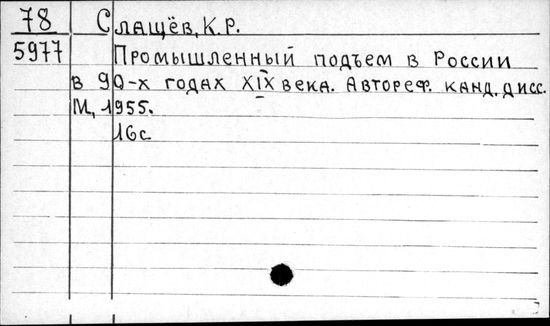 78 Слащёв, К.Р.
5977 Промышленный подъем в России
в 90-х годах XIX века. Автореф. канд. дисс.
М, 1955.
16с